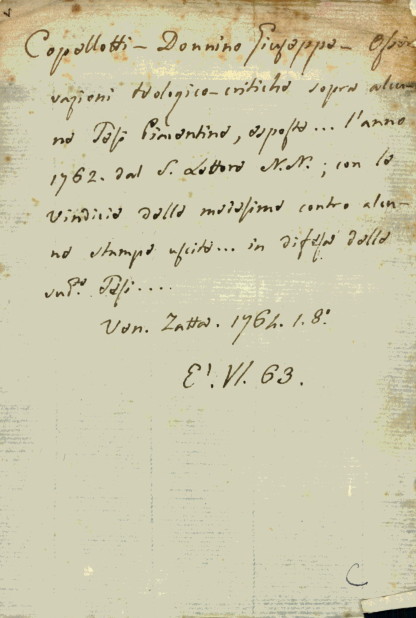 Copellotti - Donnino Giuseppe - Osser
vazioni teologico-critiche sopra alcu-
ne Tesi Piacentine, esposte... l'anno
1762. dal S. Lettore N.N.; con le
vindicie delle medesime contro alcu-
ne stampe uscite... in difesa delle
sud.e Tesi....
Ven. Zatta. 1764. 1. 8.°
E'. VI. 63.
C